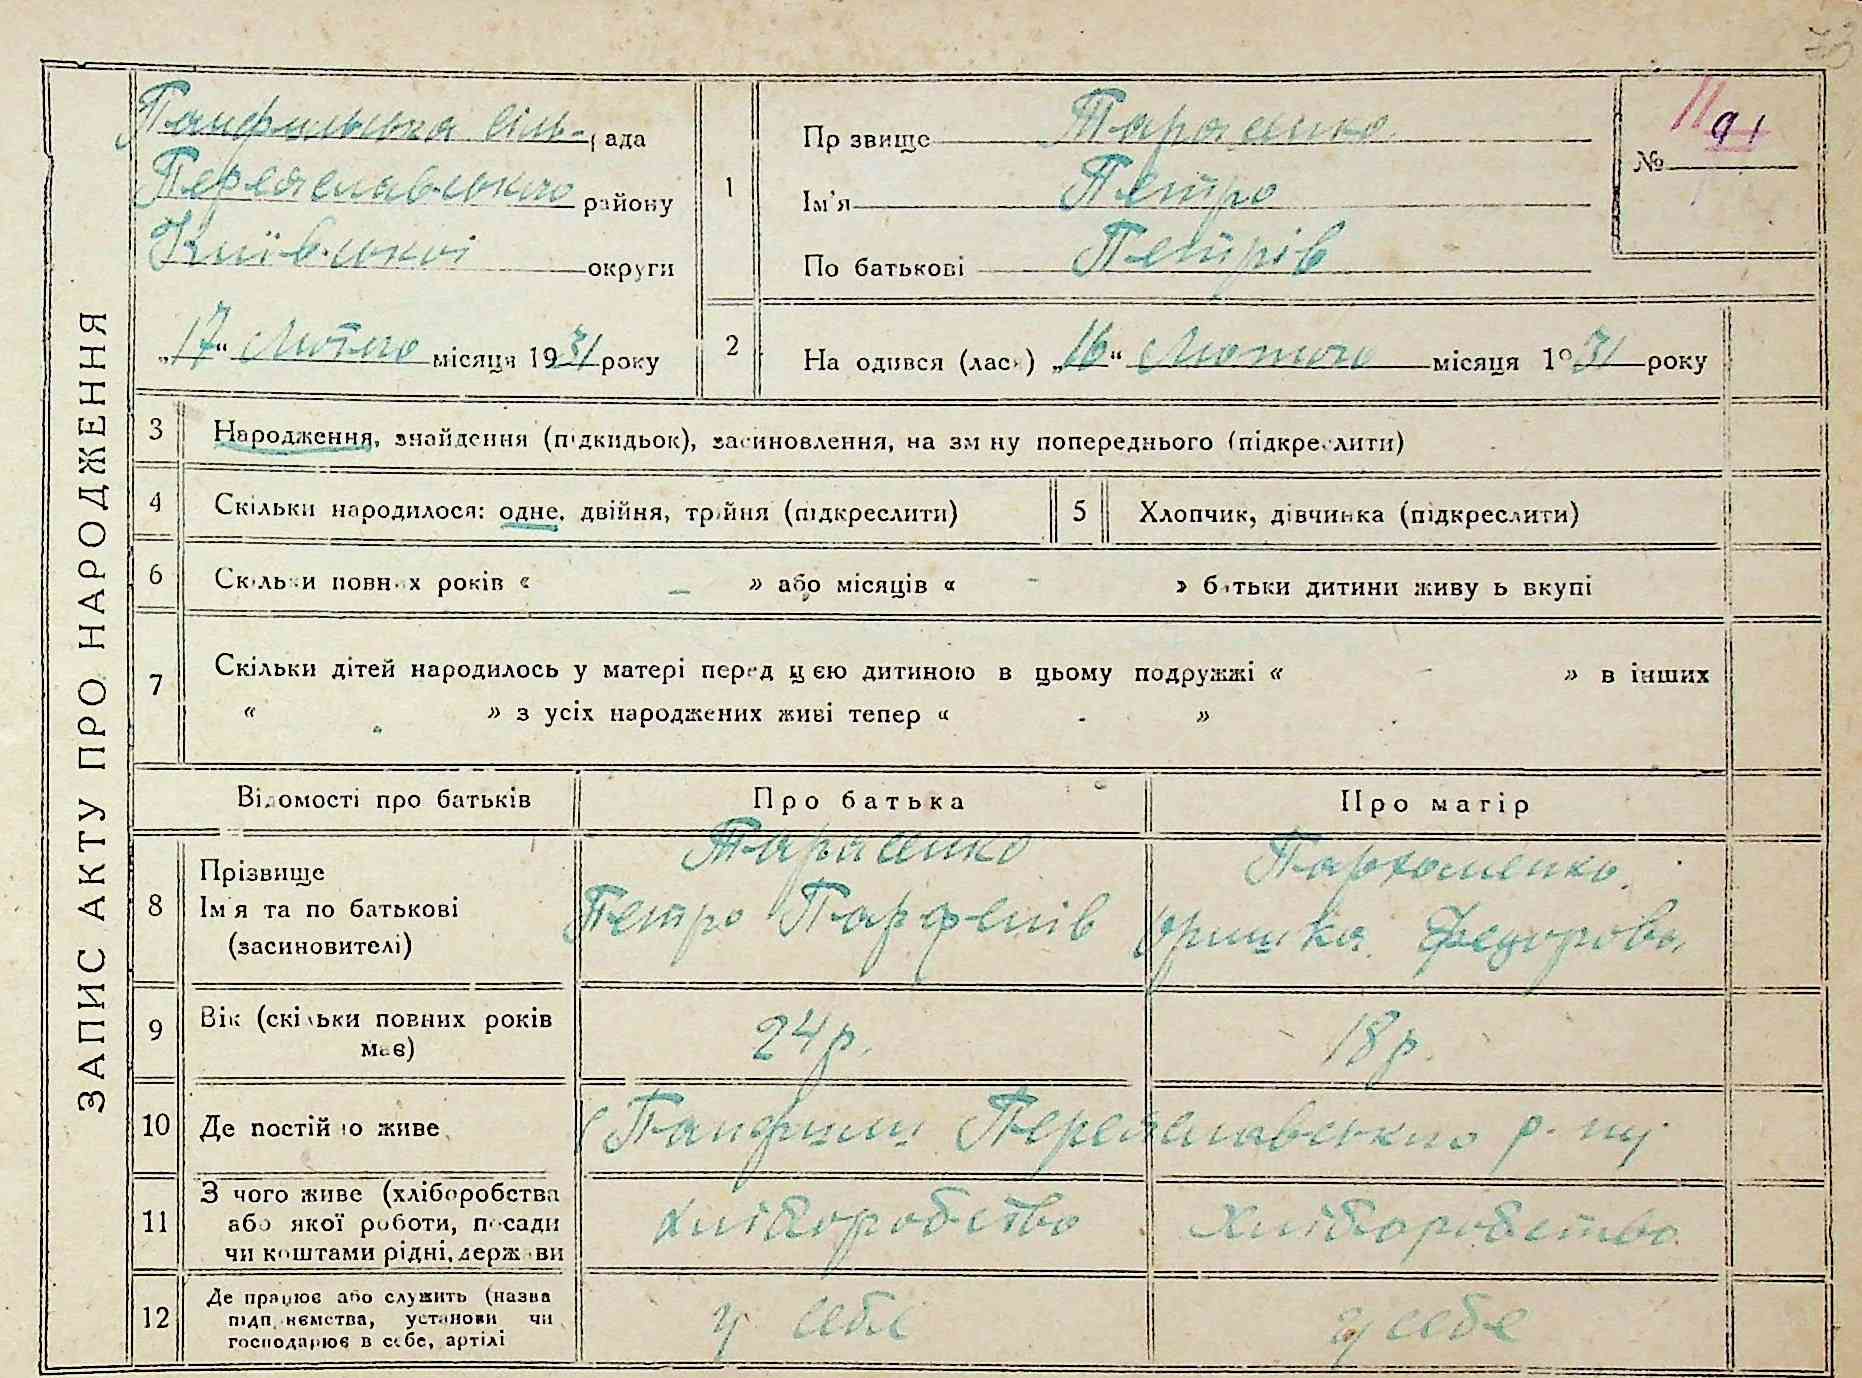 ЗАПИС АКТУ ПРО НАРОДЖЕННЯ
Панфильська сіль- рада
Переяславського району
Київської округи
„17“ Лютого місяця 1931 року
1
Прізвище Тарасенко
Ім'я Петро
По батькові Петрів
№ 91
2
Народився (лась) „16“ Лютого місяця 1931 року
3 Народження, знайдення (підкидьок), засиновлення, на зміну попереднього (підкреслити)
4 Скільки народилося: одне, двійня, трійня (підкреслити)
5 Хлопчик, дівчинка (підкреслити)
6 Скільки повних років « – » або місяців « - » батьки дитини живуть вкупі
7 Скільки дітей народилось у матері перед цією дитиною в цьому подружжі « - » в інших
« » з усіх народжених живі тепер « - »
Відомості про батьків Про батька Про матір
8 Прізвище
Ім'я та по батькові
(засиновителі)
Тарасенко
Петро Парфенів
Пархоменко
Оришка Федорова
9 Вік (скільки повних років
має)
24 р. 18 р.
10 Де постійно живе
с Панфили Переяславського р-ну
11 З чого живе (хліборобства
або якої роботи, посади
чи коштами рідні, держави
хліборобство хліборобство
12 Де працює або служить (назва
підприємства, установи чи
господарює в себе, артілі
у себе у себе